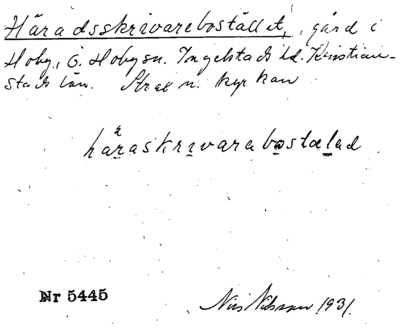 Häradsskrivarebostället, gård i
Hoby, Ö. Hoby sn. Ingelstads hd. Kristian-
stads län. Strax n. kyrkan
häraskrivarabostaləd
Nr 5445
Nils Nilsson 1931.